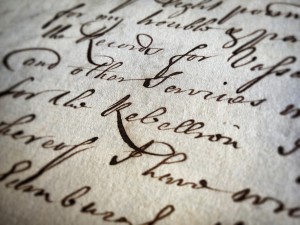 for my trouble &
the Records for
and other Services
for the Rebellion
thereof I have
Edinburgh